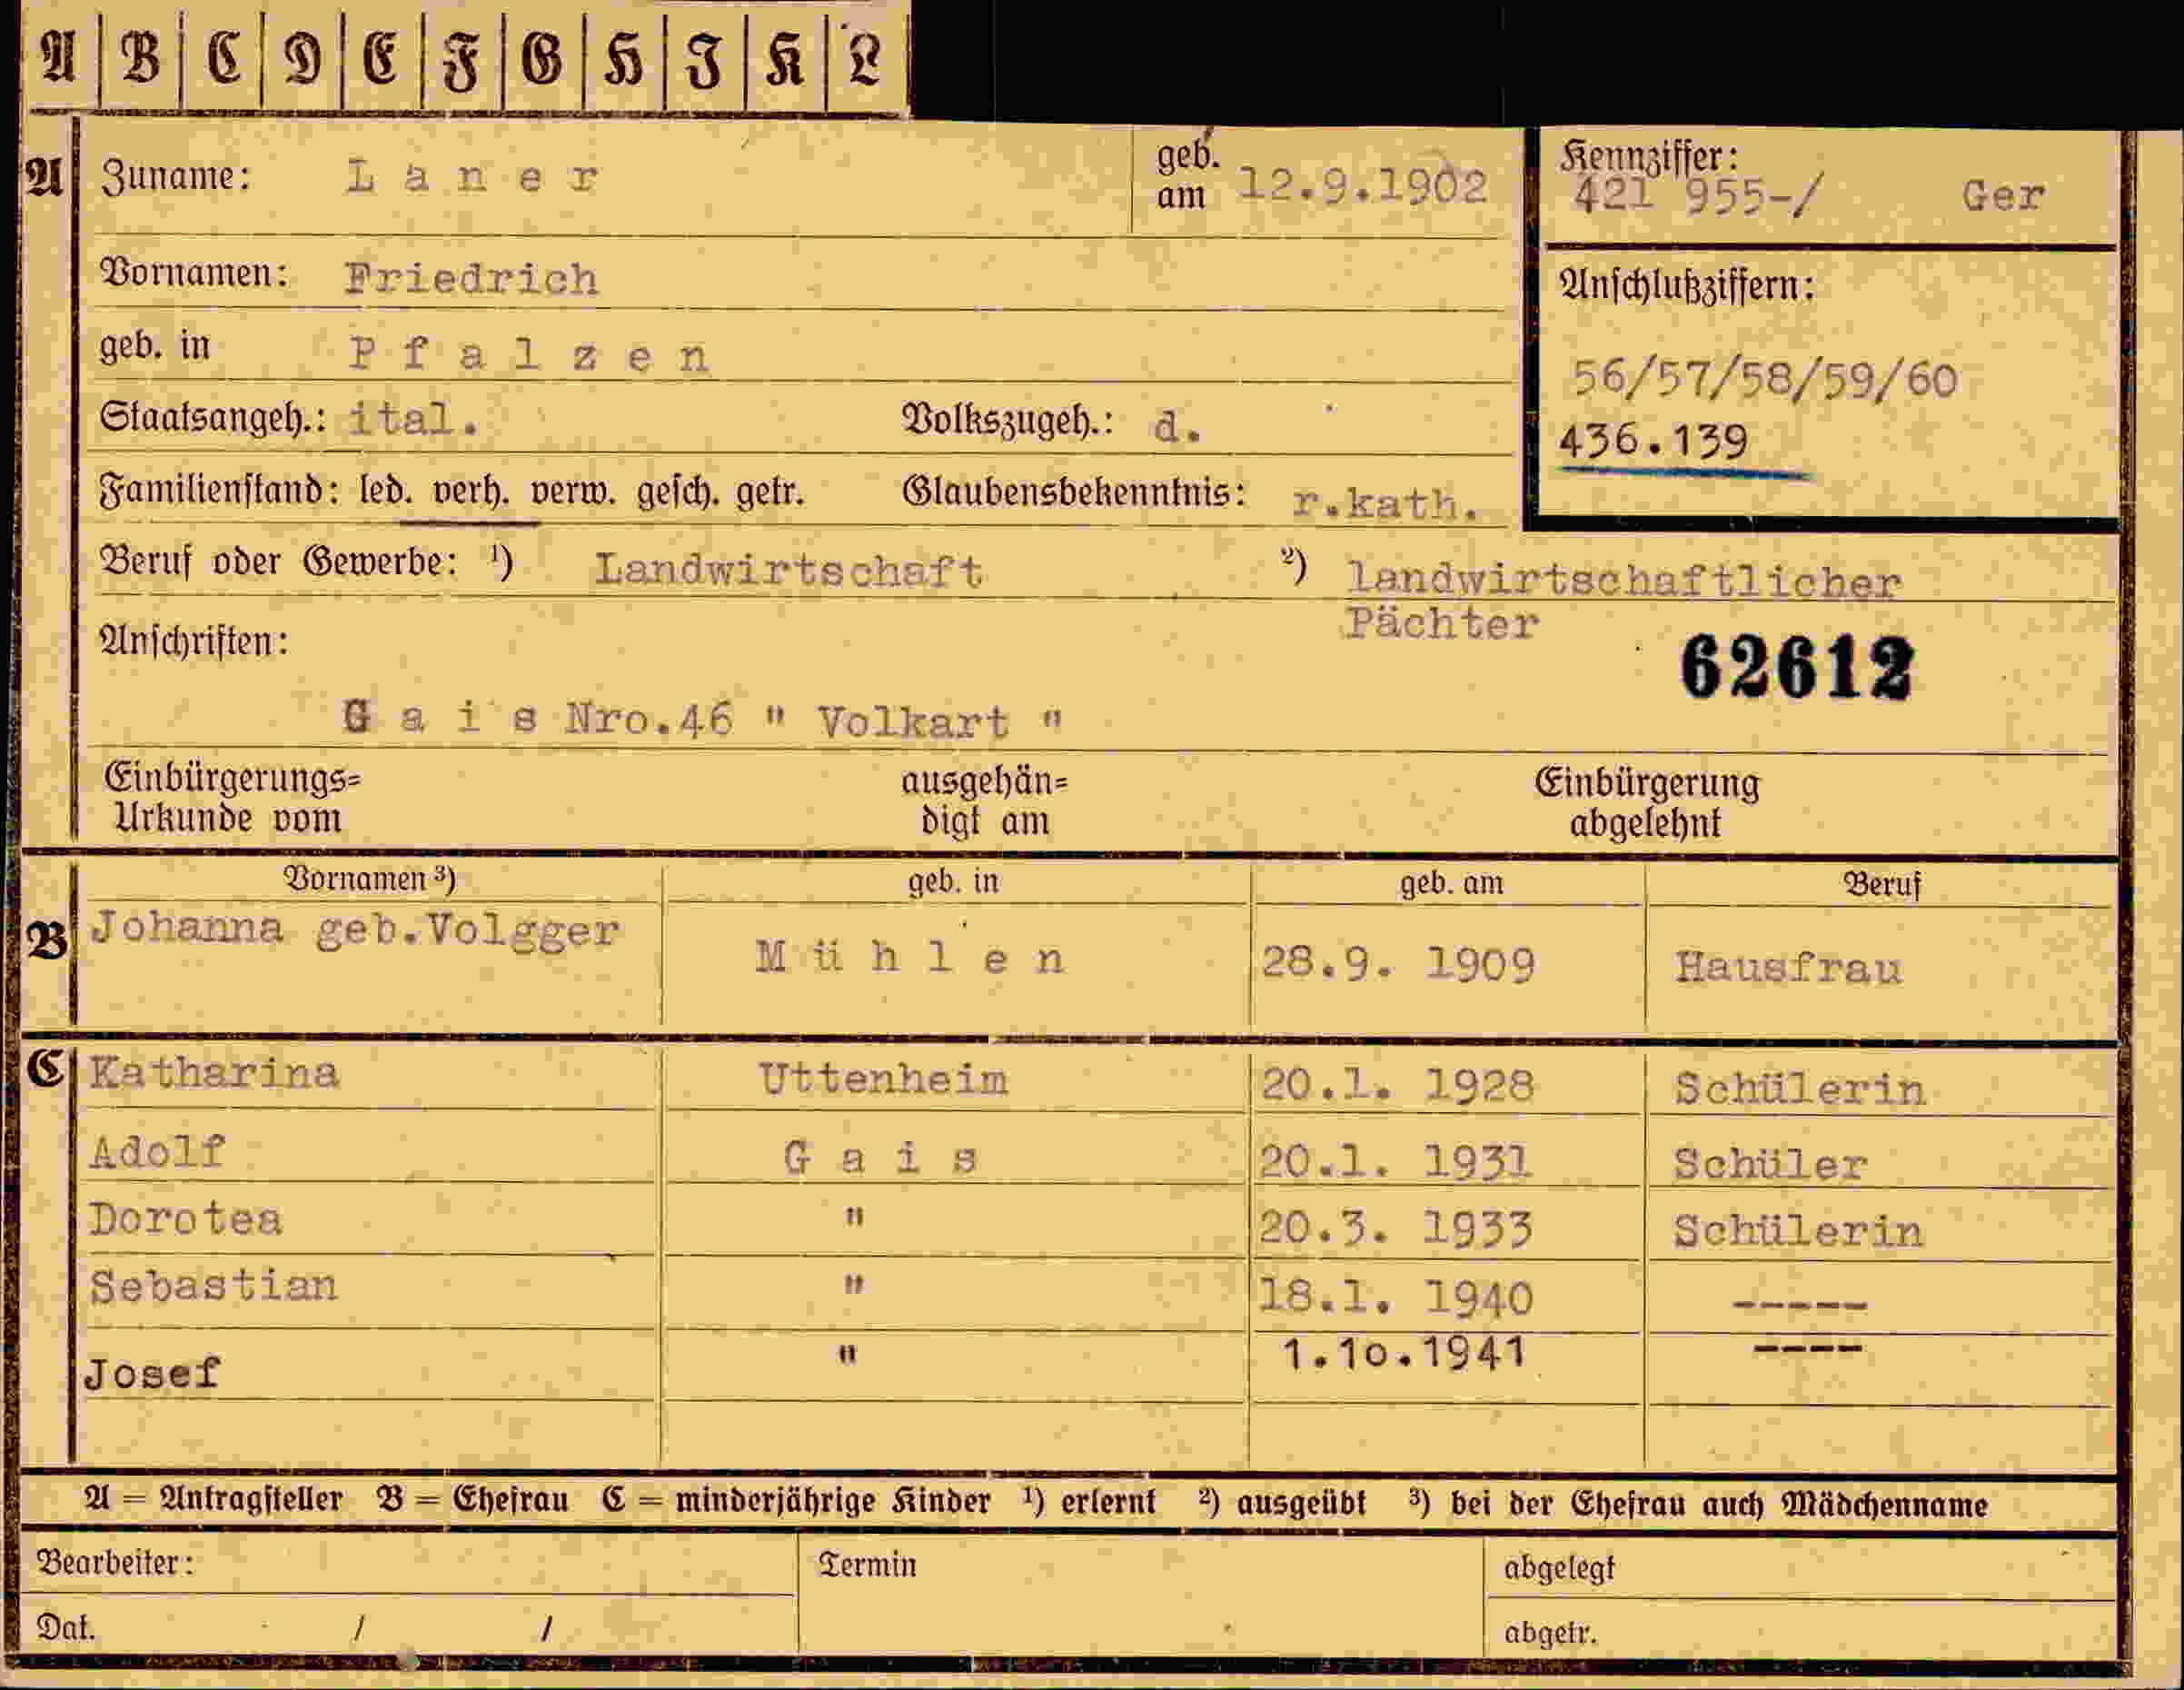 A B C D E F G H J K L
A Zuname: L a n e r geb. am 12.9.1902
Kennziffer: 421 955-/ Ger
Vornamen: Friedrich
Anschlußziffern:
geb. in P f a l z e n
56/57/58/59/60
Staatsangeh.: ital. Volkszugeh.: d.
436.139
Familienstand: led. verh. verw. gesch. getr. Glaubensbekenntnis: r.kath.
Beruf oder Gewerbe: ¹) Landwirtschaft ²) landwirtschaftlicher
Pächter
Anschriften:
62612
G a i s Nro.46 " Volkart "
Einbürgerungs= ausgehän= Einbürgerung
Urkunde vom digt am abgelehnt
Vornamen ³) geb. in geb. am Beruf
B Johanna geb.Volgger M ü h l e n 28.9. 1909 Hausfrau
C Katharina Uttenheim 20.1. 1928 Schülerin
Adolf G a i s 20.1. 1931 Schüler
Dorotea " 20.3. 1933 Schülerin
Sebastian " 18.1. 1940 -----
Josef " 1.10.1941 ----
A = Antragsteller B = Ehefrau C = minderjährige Kinder ¹) erlernt ²) ausgeübt ³) bei der Ehefrau auch Mädchenname
Bearbeiter: Termin abgelegt
Dat. / / abgetr.